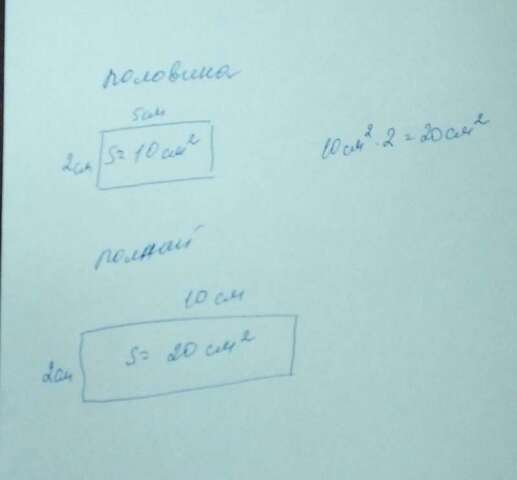 половина
5см
2см S=10см²
10см²·2=20см²
полный
10 см
2см S= 20 см²